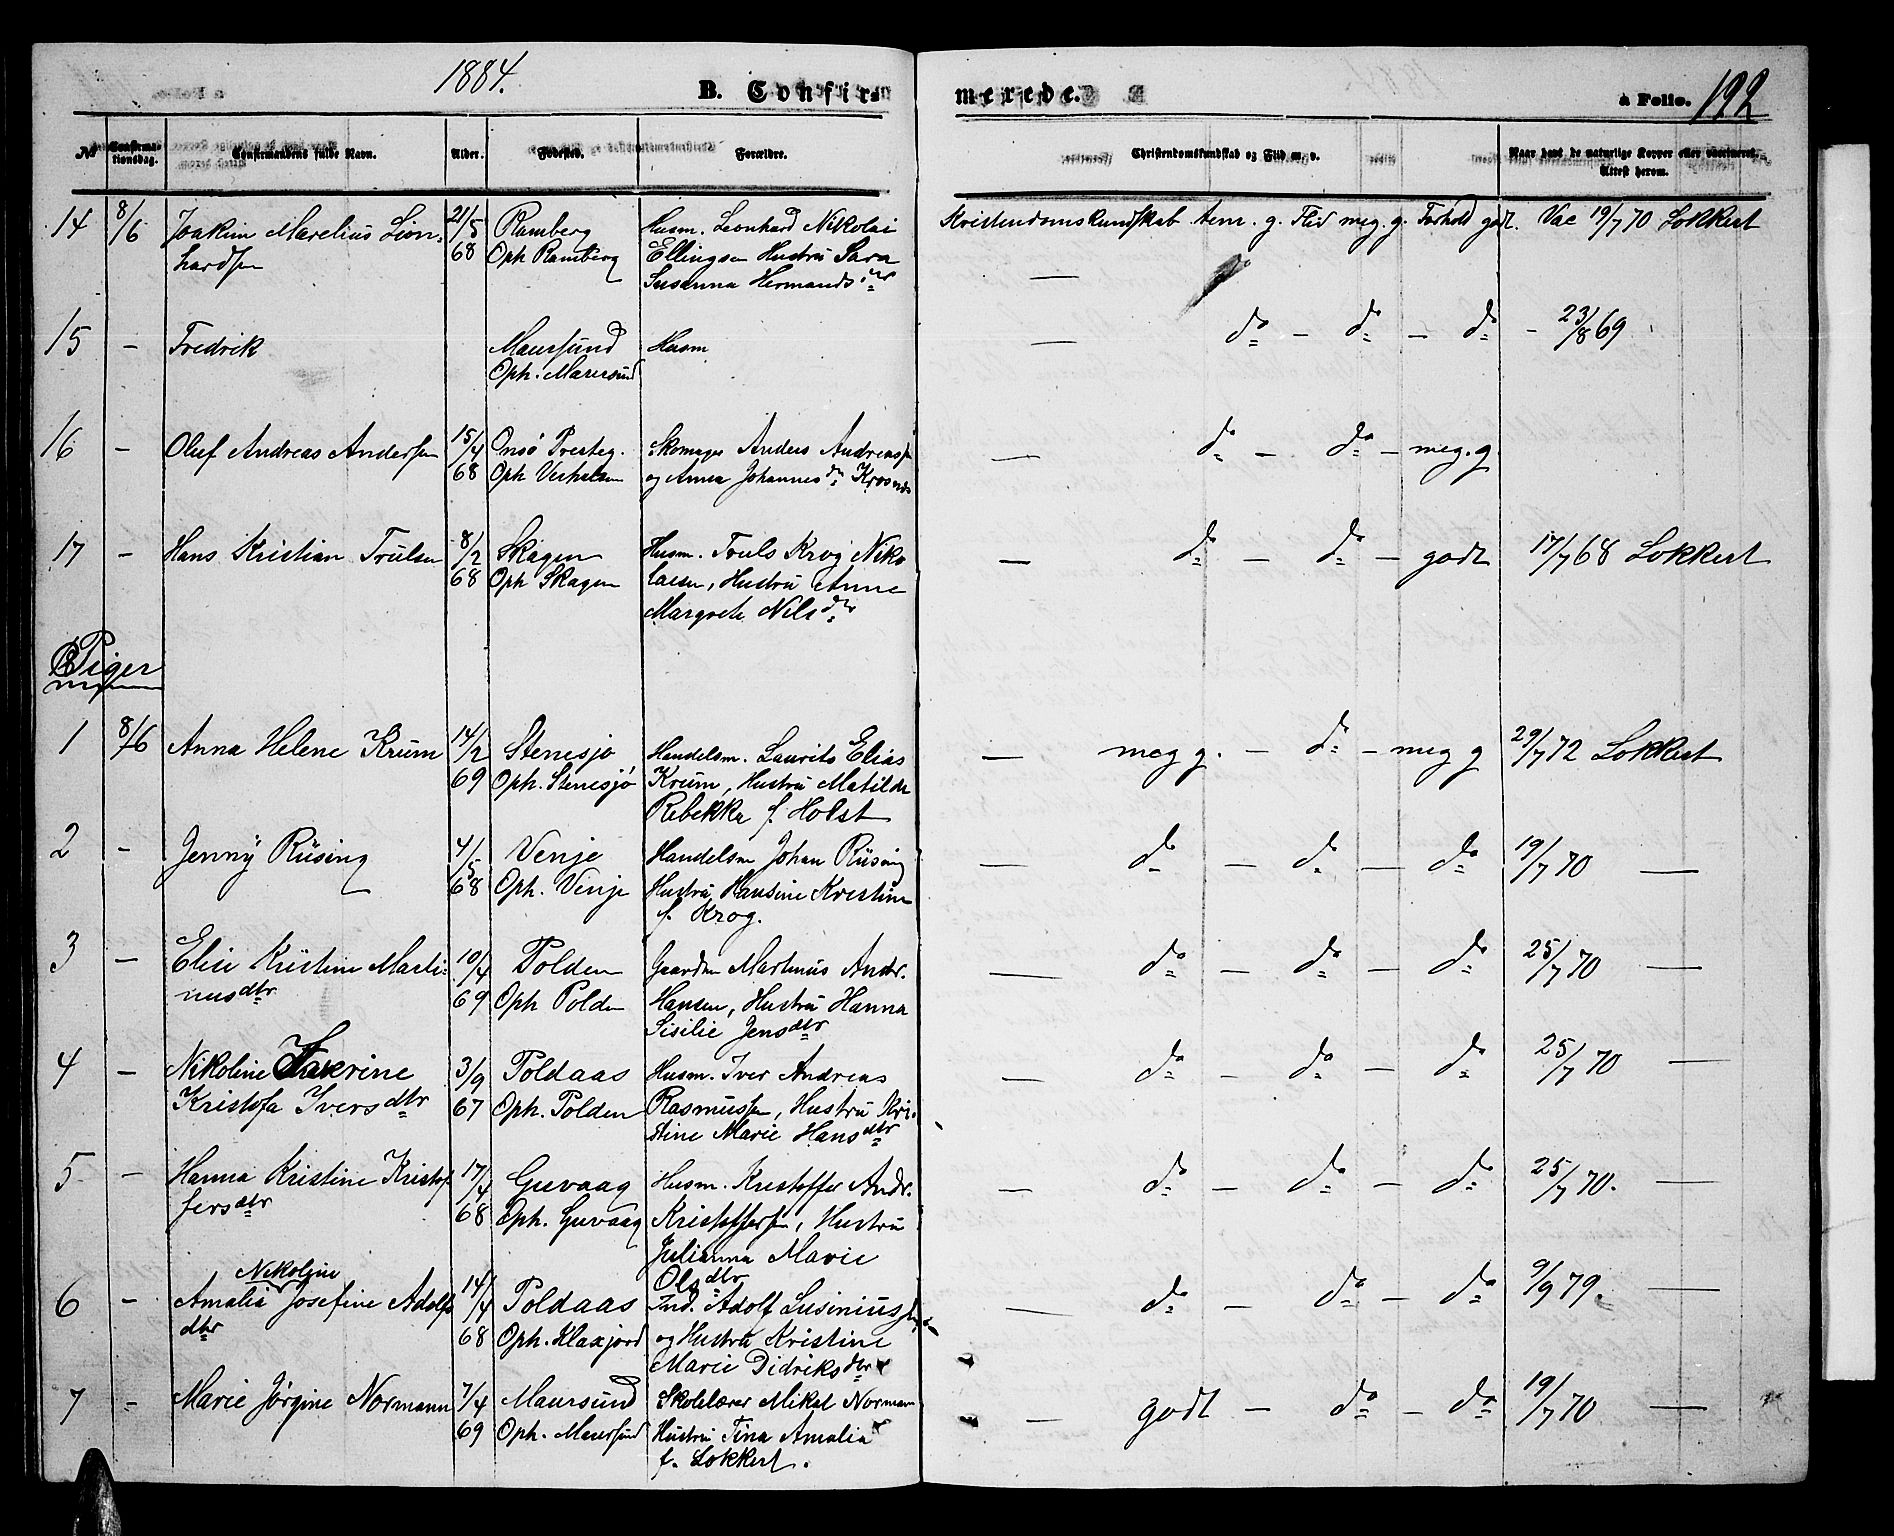 1884.
B. Confirmerede.
a Folio. 122
No
Confirmationsdag.
Confirmandens fulde Navn.
Alder.
Fødested.
Forældre.
Christendomskundskab og Flid m. v.
Naar havt de naturlige Kopper eller vaccineret.
Attest herom.
14 8/6 Joakim Marelius Leon- 21/5 Ramberg Husm. Leonhard Nikolai Kristendomskundskab tem. g. Flid meg. g. Forhold godt. Vac 19/7 70 Lokkert
hardsen 68 Oph Ramberg Ellingsen Hustru Sara
Susanna Hermandsdtr — do
15 – Fredrik Maursund Husm — do – do – do – 23/8 69
Oph. Maursund
16 – Oluf Andreas Andersen 15/4 Onsø Presteg. Skomager Anders Andreassen — do – do – meg. g
68 Oph og Anna Johannesdtr
17 – Hans Kristian Trulsen 8/2 Skagen Husm. Truls Krog Niko — do – do – godt 17/7 68 Lokkert
68 Oph Skagen laisen, Hustru Anne
Margrete Nilsdtr
Piger
1 8/6 Anna Helene Krum 14/2 Stenesjø Handelsm. Laurits Elias — meg g. – do – meg g 29/7 72 Lokkert
69 Oph. Stenesjø Krum, Hustru Matilde
Rebekka f. Holst
2 – Jenny Rüsing 4/5 Venje Handelsm Johan Rüsing — do – do – do 19/7 70 —
68 Oph. Venje Hustru Hansine Kristine
f. Krog.
3 – Elise Kristine Marti- 10/4 Polden Gaardm Martinus Andr. — do – do – do 25/7 70 —
nusdtr 69 Oph Polden Hansen, Hustru Hanna
Sisilie Jensdtr
4 – Nikoline Saverine 3/9 Poldaas Husm. Iver Andreas — do – do – do 25/7 70 —
Kristofa Iversdtr 67 Oph. Polden Rasmussen, Hustru Kri-
stine Marie Hansdtr
5 – Hanna Kristine Kristof 17/4 Guvaag Husm. Kristoffer Andr. — do – do – do 25/7 70. —
fersdtr 68 Oph. Guvaag Kristoffersen, Hustru
Julianna Marie
Olsdtr
Nikoline
6 – Amalia Josefine Adolfs 14/4 Poldaas Ind. Adolf Lusinius — do – do – do 9/9 79. —
dtr 68 Oph. Klaxjord og Hustru Kristine
Marie Didriksdtr
7 – Marie Jørgine Normann 7/4 Maursund Skolelærer Mikal Norman — godt – do – do 19/7 70 —
69 Oph. Maursund Hustru Tina Amalia
f. Lokkert.